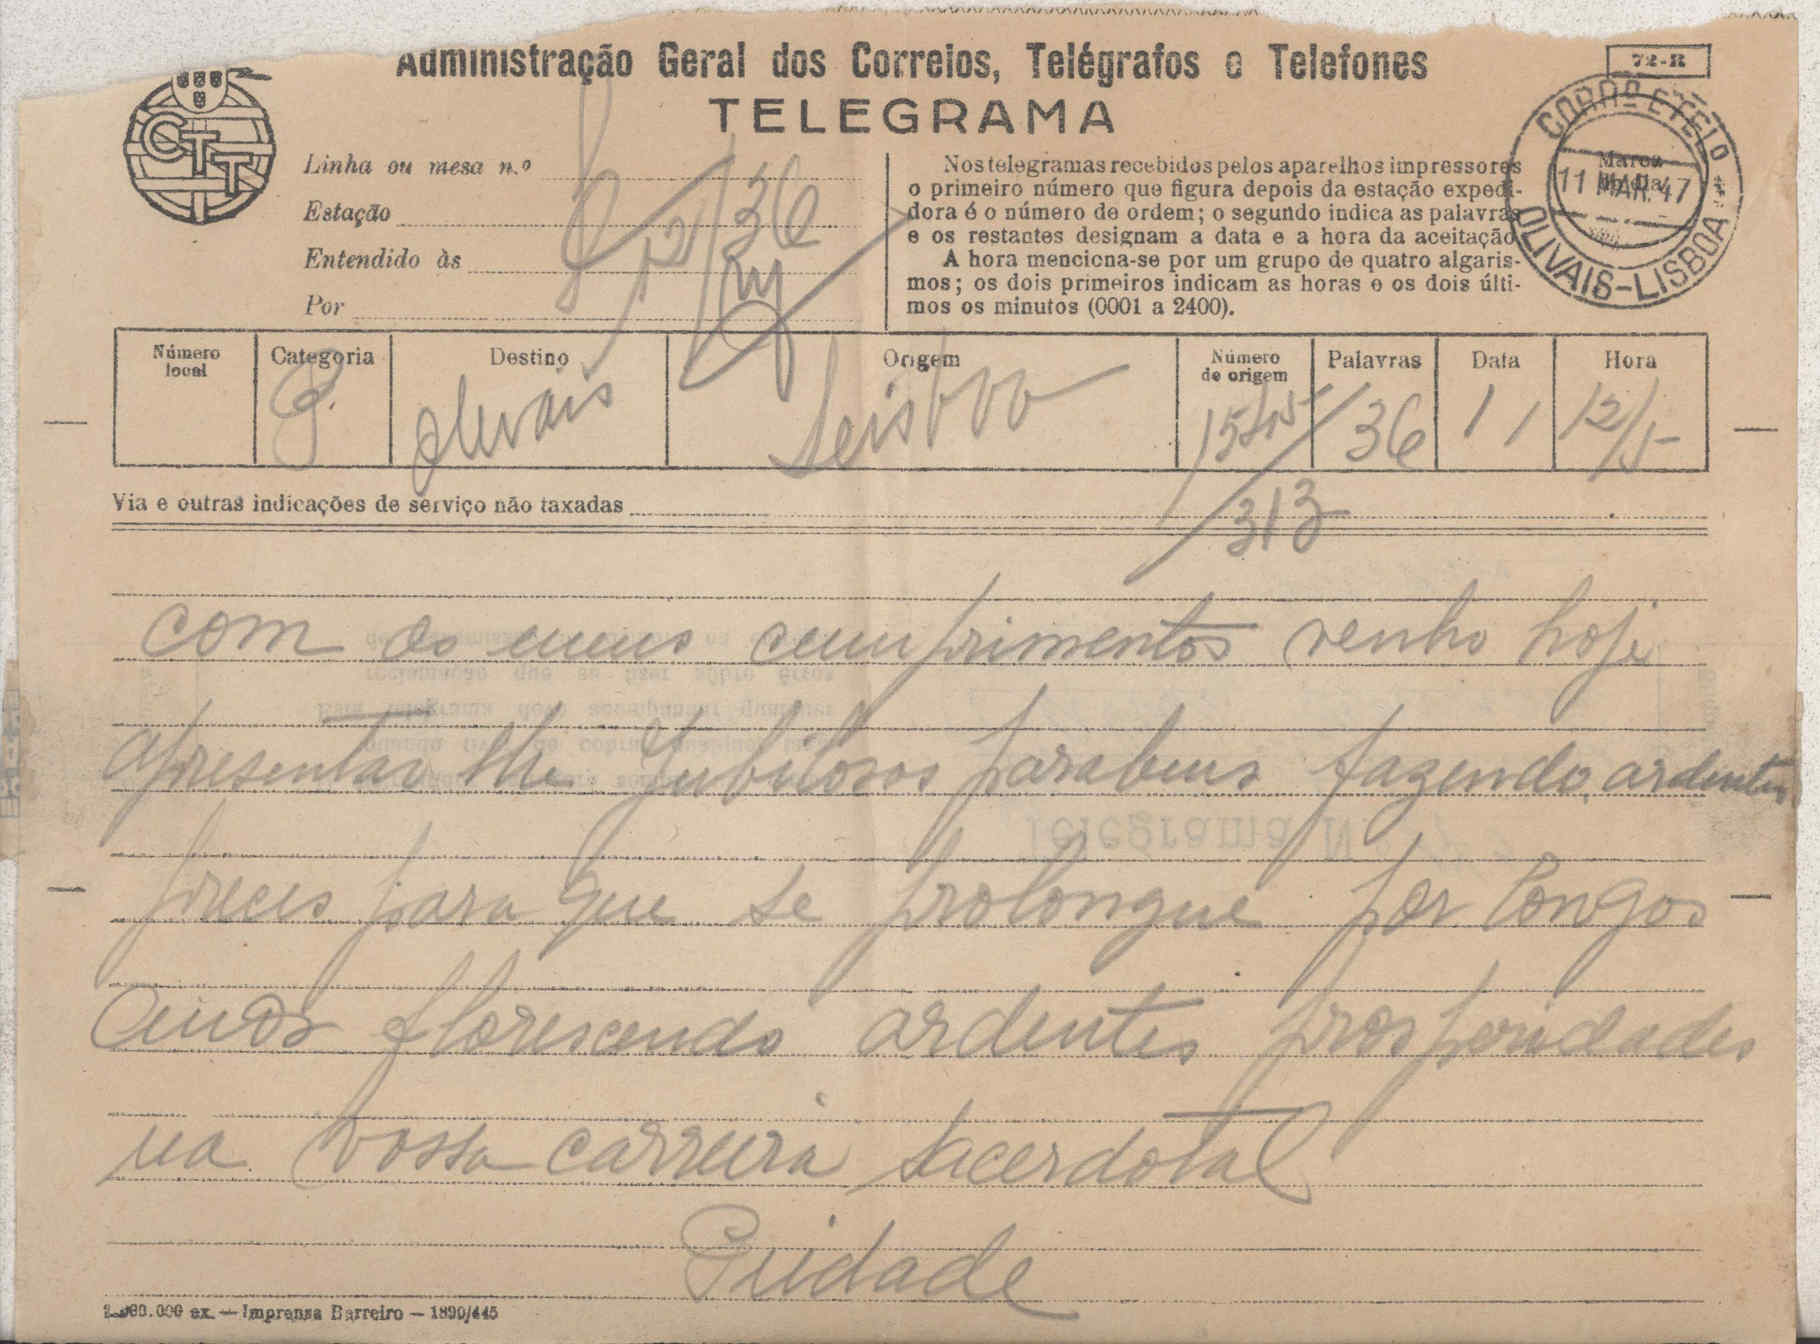 Administração Geral dos Correios, Telégrafos e Telefones
72-R
TELEGRAMA
CTT
Linha ou mesa n.º
Estação
Entendido às
Por
12/36
Nos telegramas recebidos pelos aparelhos impressores
o primeiro número que figura depois da estação expedi-
dora é o número de ordem; o segundo indica as palavras
e os restantes designam a data e a hora da aceitação
A hora menciona-se por um grupo de quatro algaris-
mos; os dois primeiros indicam as horas e os dois últi-
mos os minutos (0001 a 2400).
CORRº E TELº
Marca
11 MAR. 47
OLIVAIS-LISBOA
Número local
Categoria
Destino
Origem
Número de origem
Palavras
Data
Hora
P.
Olivais
Lisboa
36
11
12/5
Via e outras indicações de serviço não taxadas
313
com os meus cumprimentos venho hoje
apresentar lhe Jubilosos parabens fazendo ardentes
preces para que se prolongue por longos
anos florescendo ardentes prosperidades
na vossa carreira sacerdotal
Piidade
2.000.000 ex. — Imprensa Barreiro — 1890/445